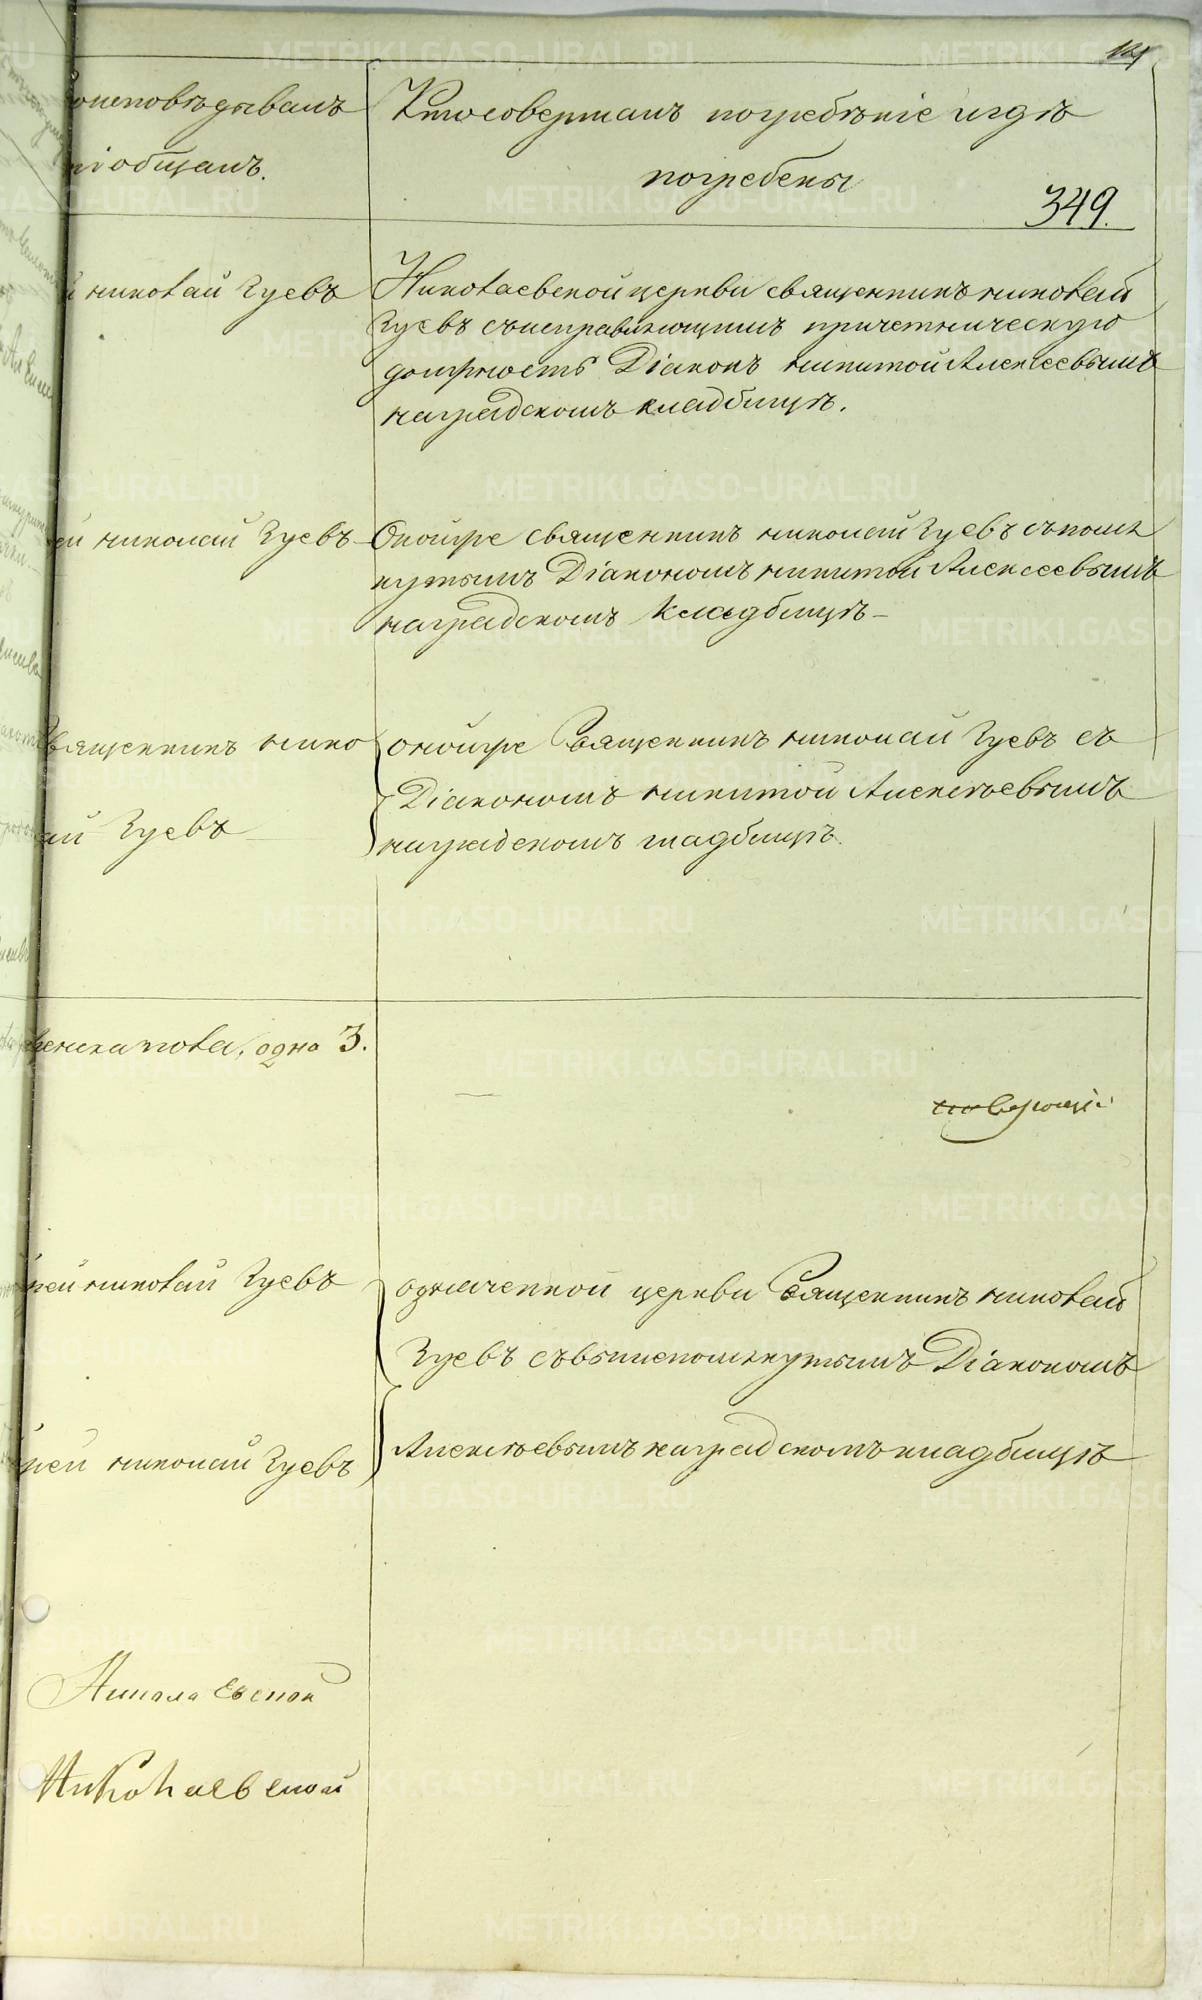 121
исповѣдывалъ
пріобщалъ.
Кто совершалъ погребѣніе и гдѣ
погребены
349.
й николай Зуевъ
Николаевской церкви священникъ николай
Зуевъ съ исправляющимъ причетническую
должность Діаконъ никитой Алексеевымъ
на градскомъ кладбищѣ.
ей николай Зуевъ
Онойже священникъ николай Зуевъ съ помя
нутымъ Діакономъ никитой Алексеевымъ
на градскомъ кладбищѣ
Священникъ нико
ай Зуевъ
онойже Священникъ николай Зуевъ съ
Діакономъ никитой Алексѣевымъ
на градскомъ кладбищѣ.
женска пола, одно 3.
рей николай Зуевъ
означенной церкви Священникъ николай
Зуевъ съ вышепомянутымъ Діакономъ
рей николай Зуевъ
Алексѣевымъ на градскомъ кладбищѣ
Николаевской
Николаевской